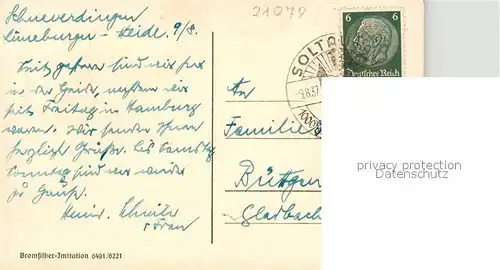 Schneverdingen
Lüneburger-Heide. 9/8.
21079
Seit gestern sind wir hier
in der Heide, nachdem wir
seit Freitag in Hamburg
waren. Wir senden Ihnen
herzliche Grüße. Bis Samstag
Sonntag sind wir wieder
zu Hause.
Heinr. Schmitz
u Frau
Bromsilber-Imitation 6491/6221
6 6
Deutsches Reich
SOLTAU
-9.8.37
1000
An
Familie
Büttgen
Gladbach
privacy protection
Datenschutz